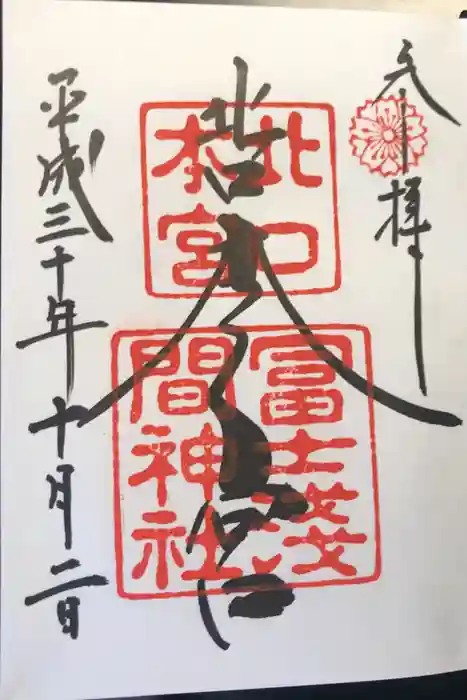 奉拝
北口
本宮
冨士淺
間神社
北口
本宮
平成三十年十月二日